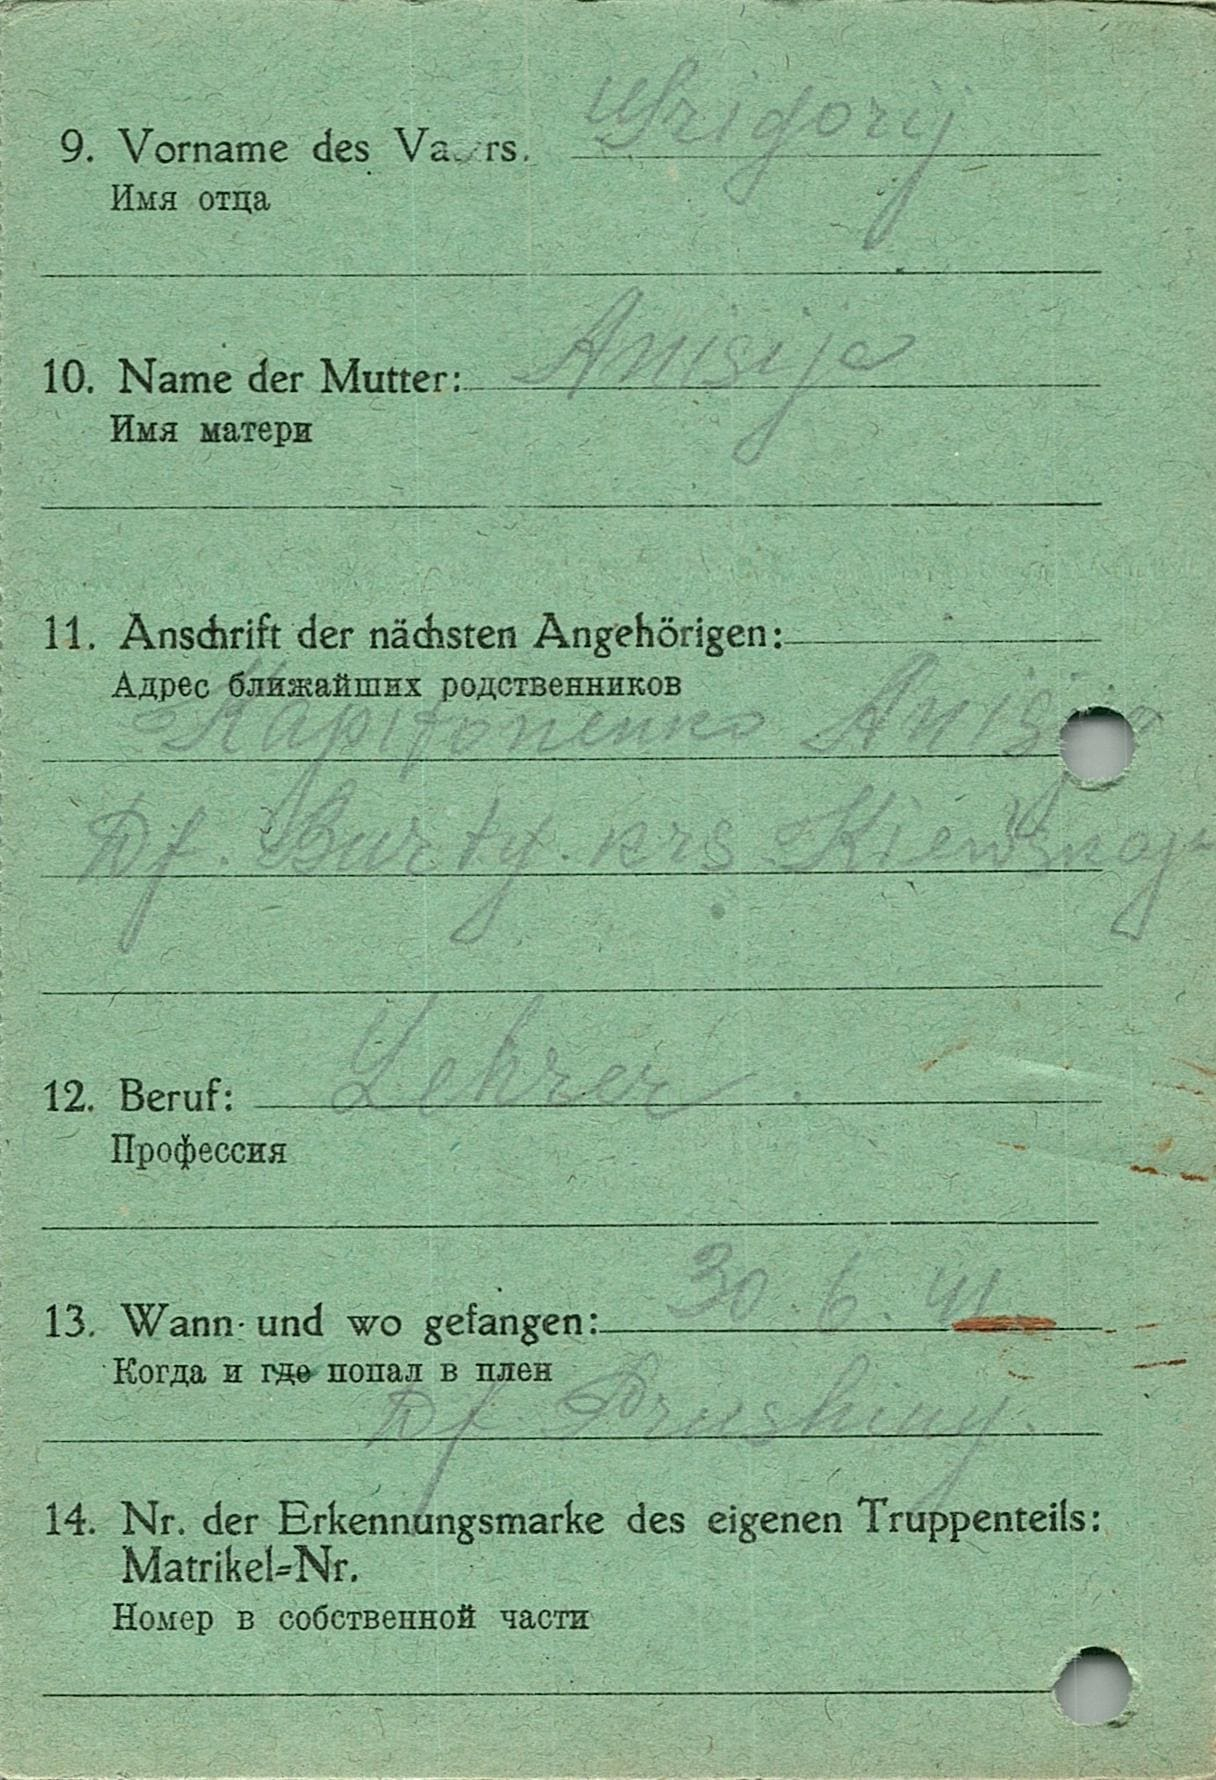 9. Vorname des Vaters. Grigorij
Имя отца
10. Name der Mutter: Anisija
Имя матери
11. Anschrift der nächsten Angehörigen:
Адрес ближайших родственников
Kapitonenko Anisija
Df. Burty. krs Kiewskaja
12. Beruf: Lehrer.
Профессия
13. Wann und wo gefangen: 30. 6. 41.
Когда и где попал в плен
Df. Prushiny.
14. Nr. der Erkennungsmarke des eigenen Truppenteils:
Matrikel=Nr.
Номер в собственной части